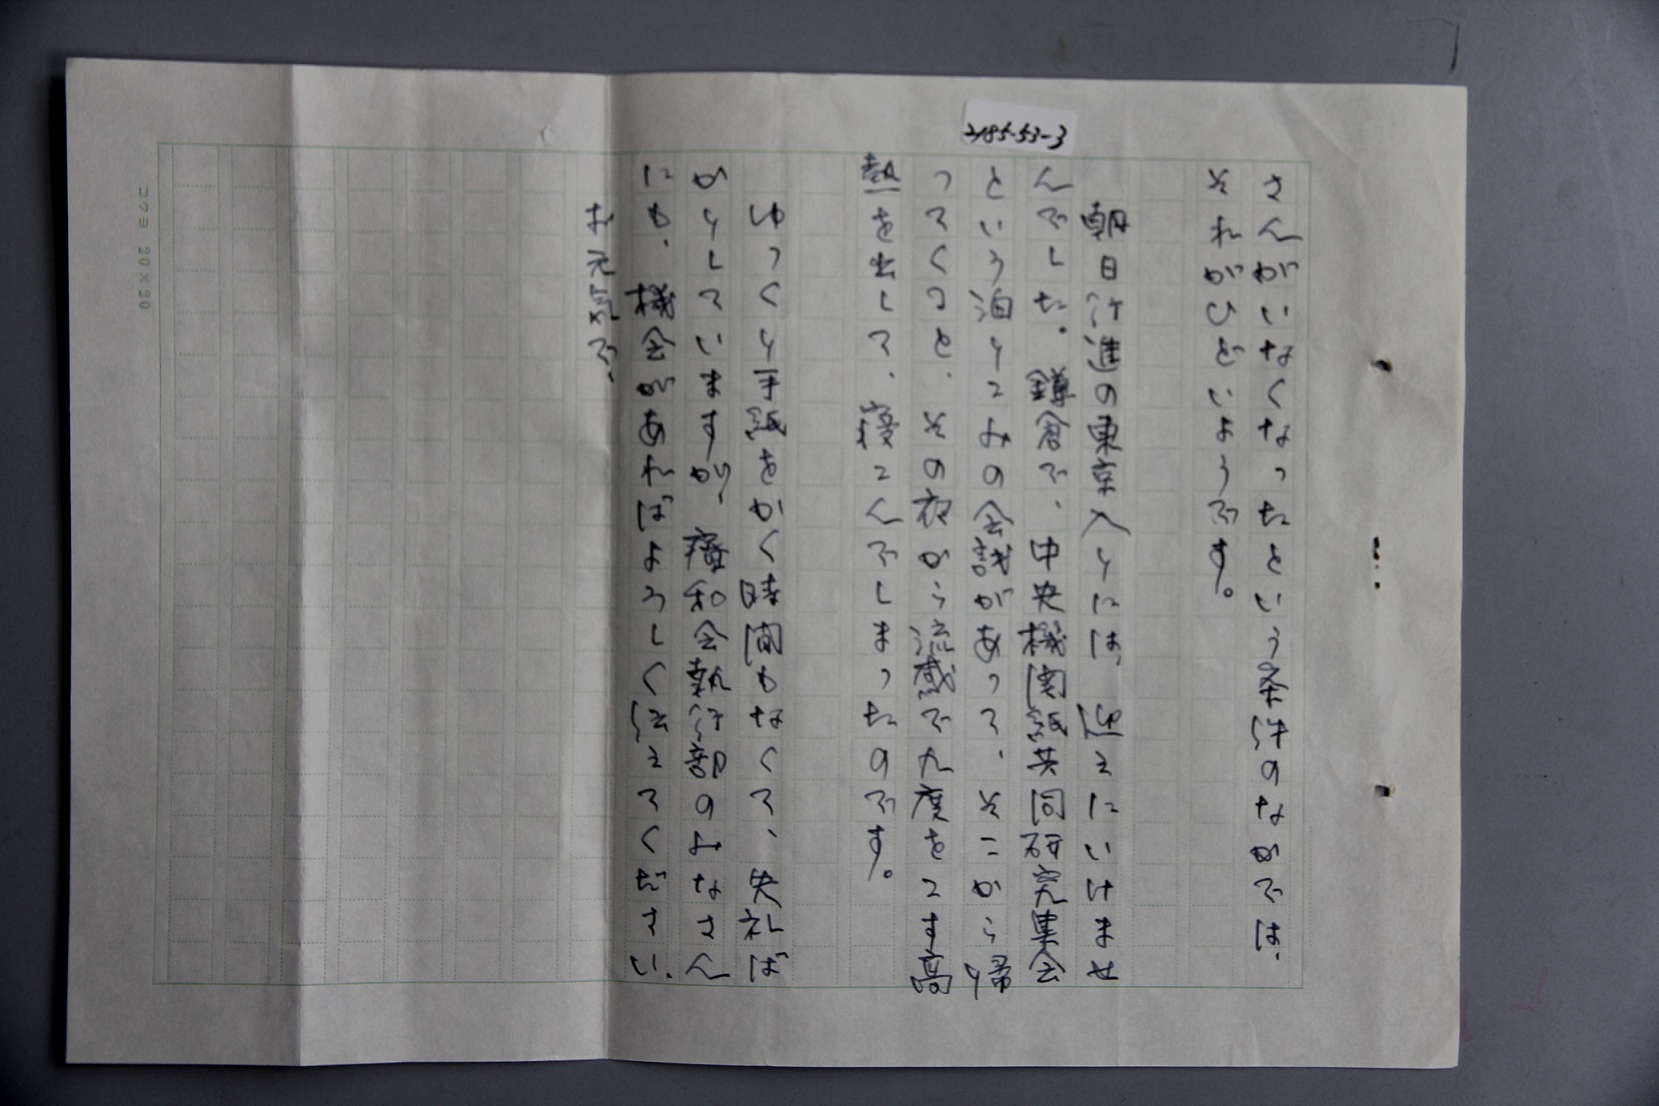 2185-53-3
さんがいなくなったという条件のなかでは、
それがひどいようです。
朝日行進の東京入りには、迎えにいけませ
んでした。鎌倉で、中央機関紙共同研究集会
という泊りこみの会議があって、そこから帰
ってくると、その夜から流感で九度をこす高
熱を出して、寝こんでしまったのです。
ゆっくり手紙をかく時間もなくて、失礼ば
かりしていますが、痛和会執行部のみなさん
にも、機会があればよろしく伝えてください。
お元気で、
コクヨ 20×20